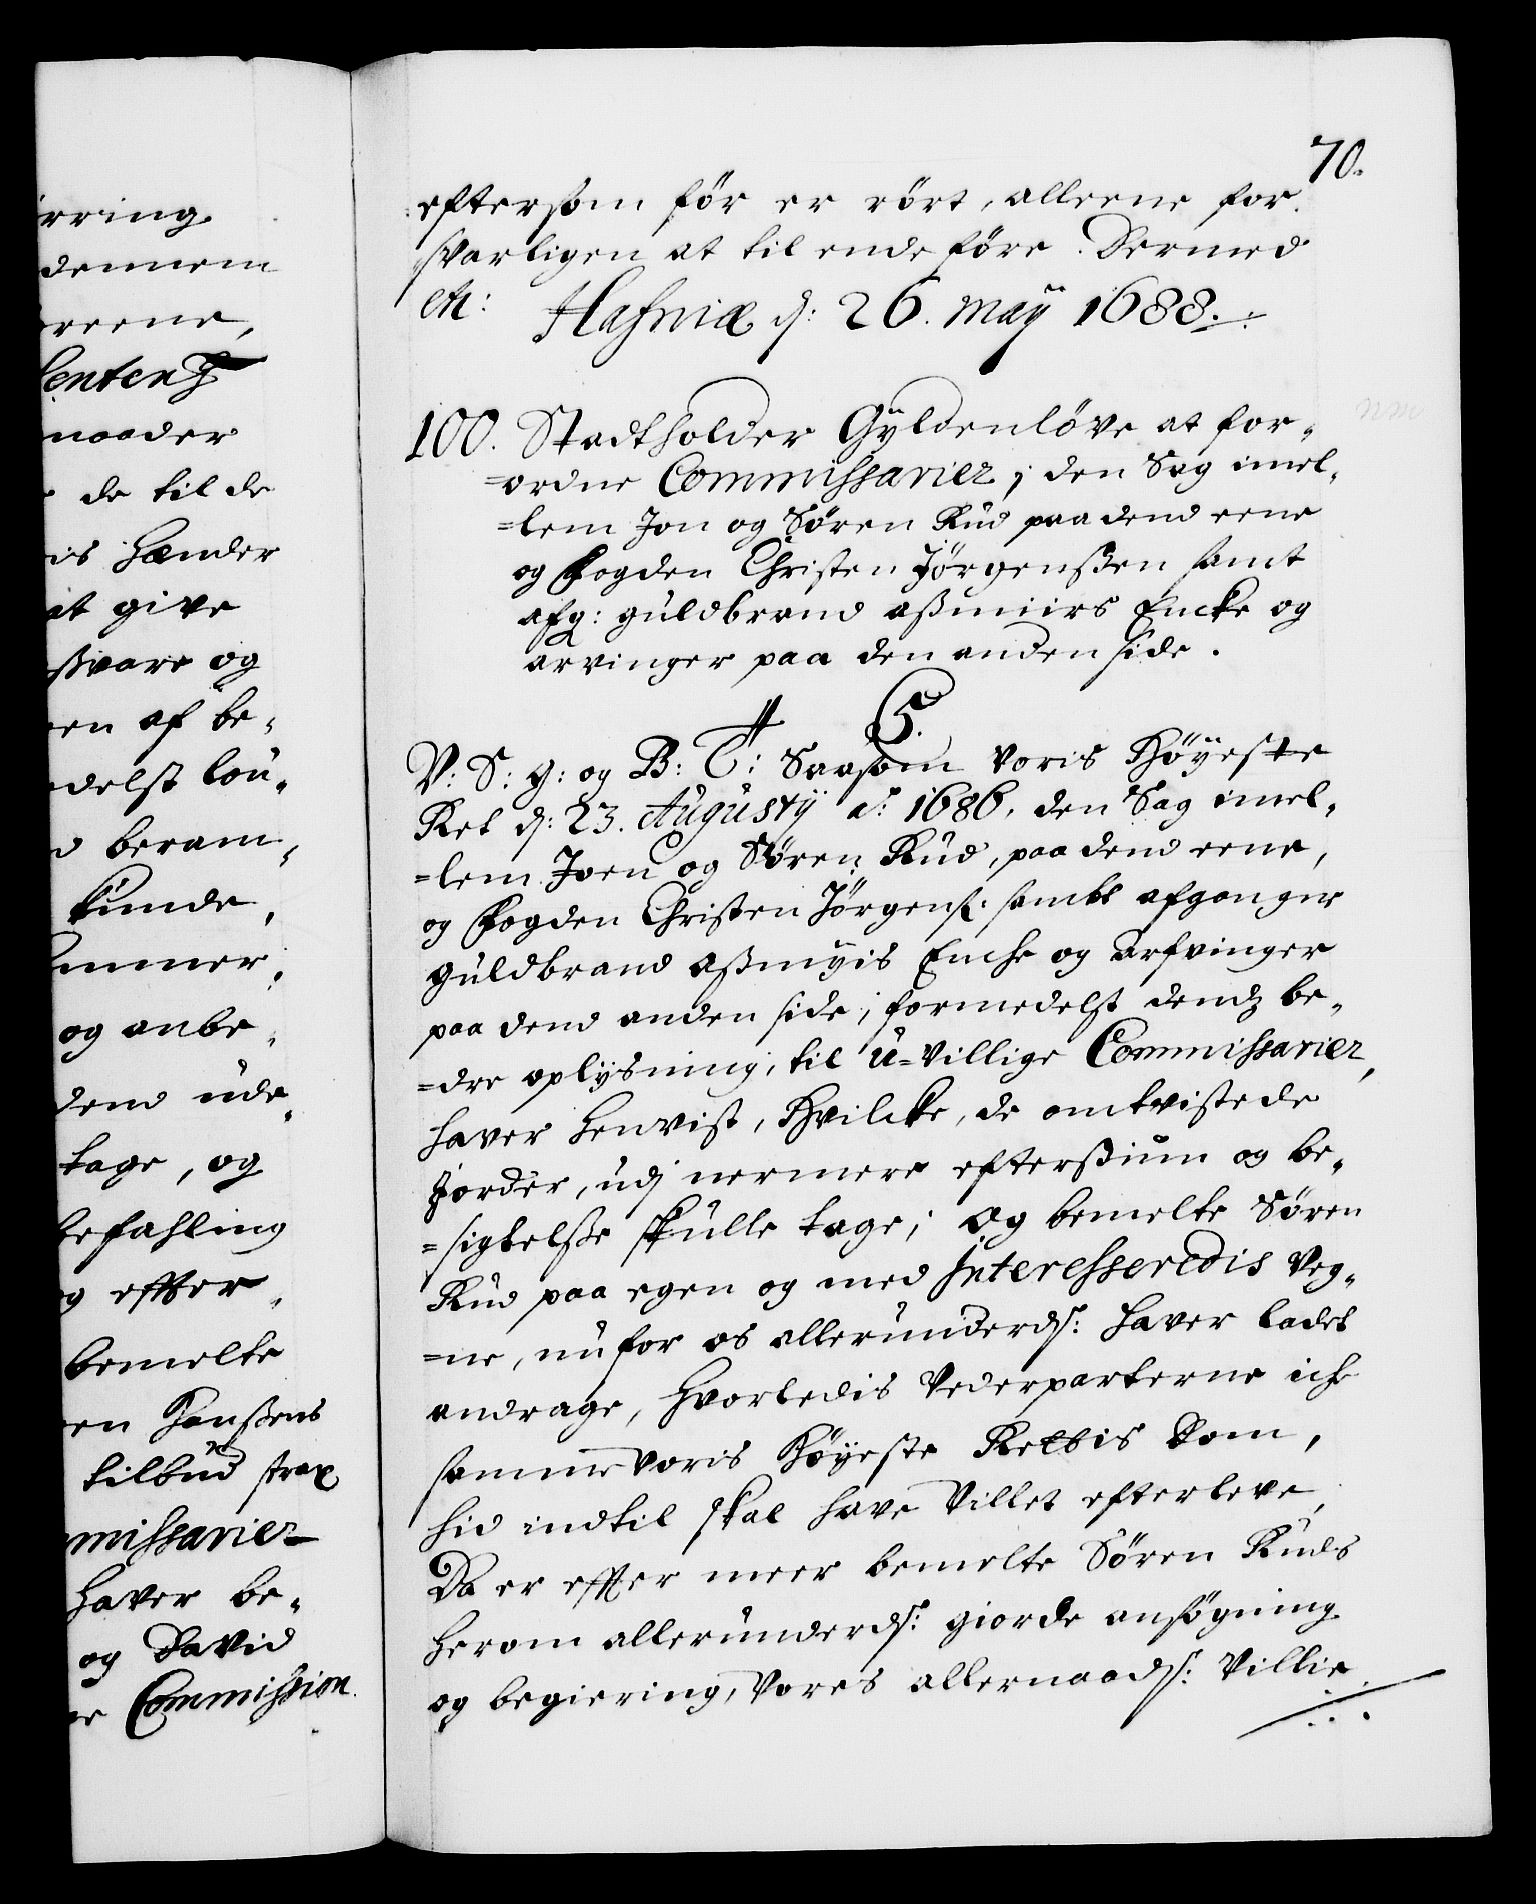 rring
dennem
reene,
Sententz
maader
de til de
is Hænder
at give
ßvare og
en af be„
delst lou„
d beram„
kunde,
mmer„
og anbe„
dend ude„
tage, og
befahling
g effter„
bemelte
en Hanßens
tilbud strax
mmissarier
haver be„
og David
er Commission
70.
eftersom för er rört, alleene for
svarligen at til ende före. Dermed
etc: Hafniæ d: 26. maÿ 1688.
100. Stadtholder Gÿldenlöve at for„
=ordne Commissarier, j den Sag imel„
=lem Jon og Sören Rud paa dend eene
og Fogden Christen Jörgenßen samt
afg: guldbrand aßmiirs Encke og
arvinger paa den anden side.
C 5.
V: S: g: og B: T: Saasom voris Höÿeste
Ret d: 23. Augustÿ a: 1686, den Sag imel„
=lem Joen og Sören Rud, paa dend eene,
og Fogden Christen Jörgens: sambt afgangne
guldbrand aßmÿis Enche og arfvinger
paa dend anden side, formedelst dendz be„
=dre oplÿsning, til u=villige Commissarier,
haver henvist, Hvilcke, de omtvistede
Jorder, udj nermere efterßiun og be„
=sigtelße skulle tage; og bemelte Sören
Rud paa egen og med Interesseredis veg„
=ne, nu for os allerunderds: haver ladet
andrage, hvorledis vederparterne iche
samme voris Höÿeste Rettis Dom,
hid indtil skal have villet efterleve,
Da er effter meer bemelte Sören Ruds
herom allerunderds: giorde ansögning
og begiering, vores allernaads: Villie